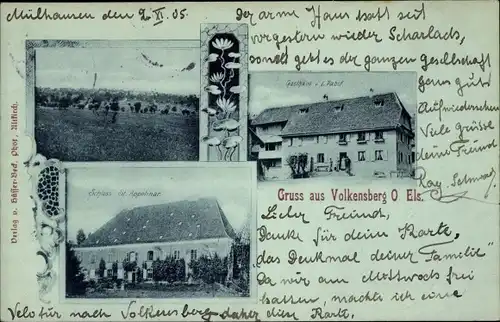 Mülhausen den 2. XI. 05.
Der arme Hans hatt seit
vorgestern wieder Scharlach,
sonst geht es der ganzen Gesellschaft
ganz gut
Auf wiedersehen
Viele Grüsse
dein Freund
Ray. Schmidt
Gasthaus v. J. Pabst
Schloss
Gruss aus Volkensberg O Els.
Verlag v. Phot., Altkirch.
Lieber Freund,
Danke für deine Karte,
das Denkmal deiner Familie"
Da wir am Mittwoch frei
hatten, machte ich eine
Velo für nach Volkensberg daher diese Karte.